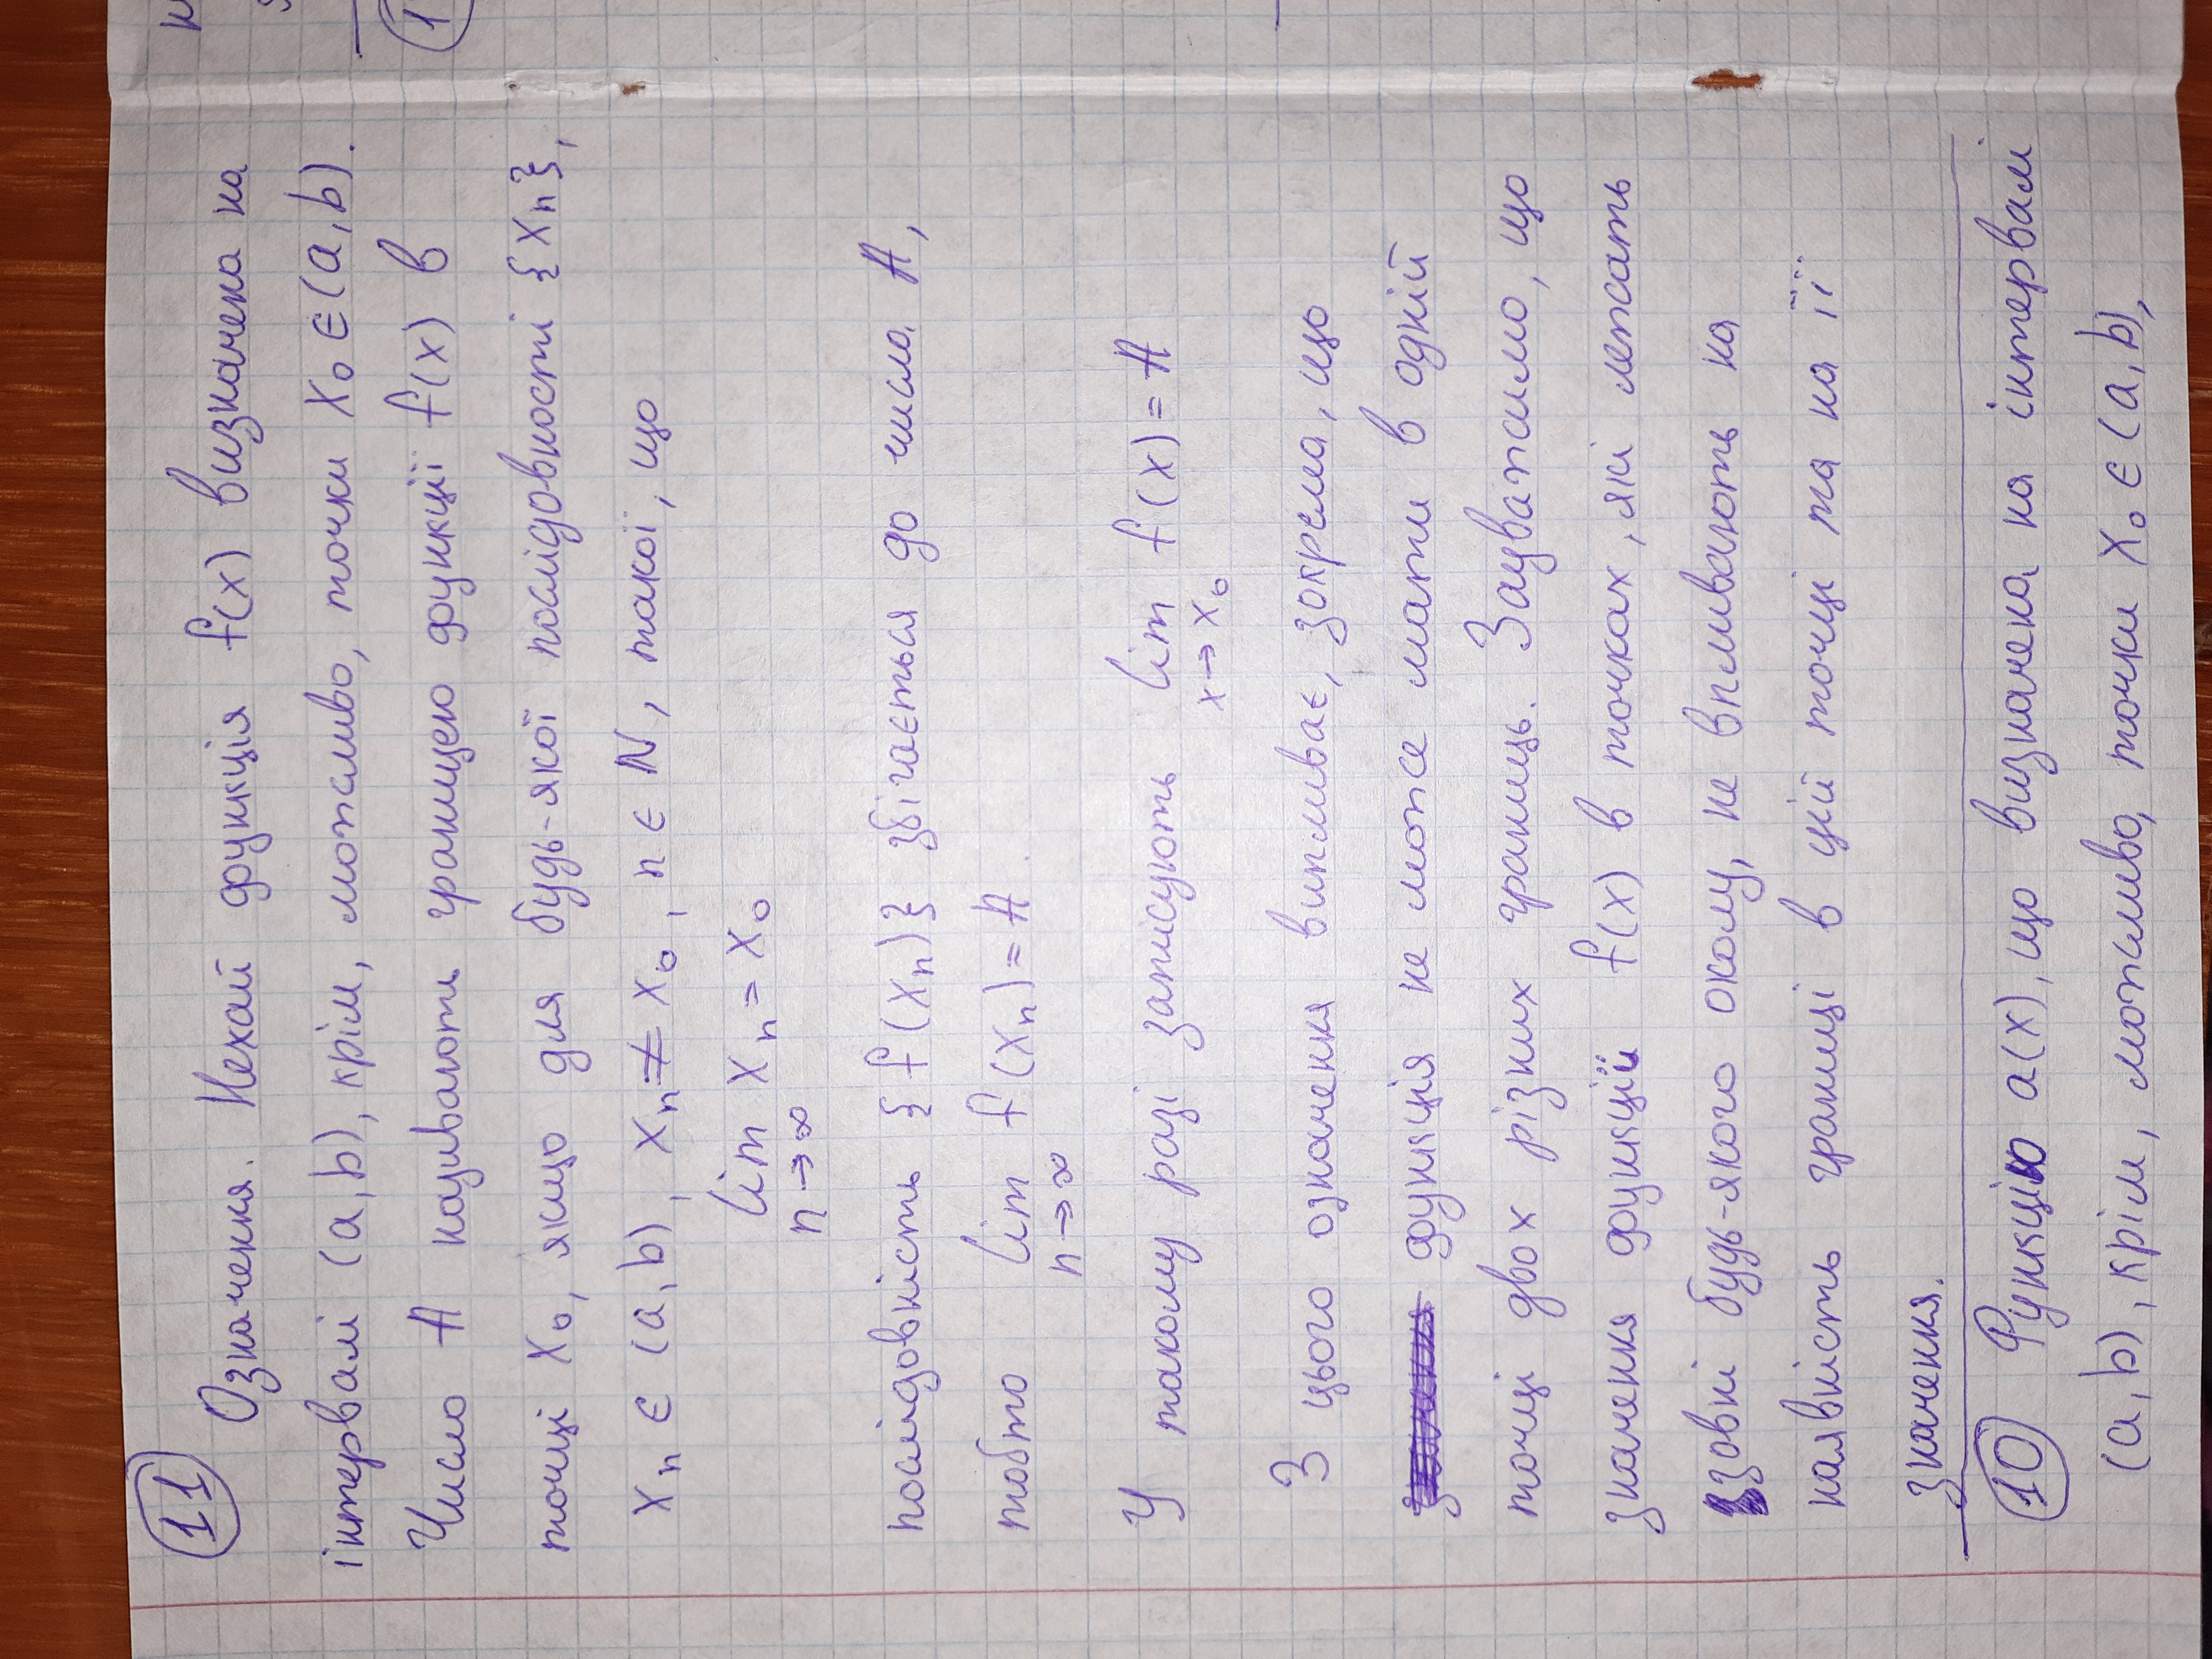 11
Означення. Нехай функція f(x) визначена на
інтервалі (a,b), крім, можливо, точки x₀ ∈ (a,b).
Число A називають границею функції f(x) в
точці x₀, якщо для будь-якої послідовності {xₙ},
xₙ ∈ (a,b), xₙ ≠ x₀, n ∈ N, такої, що
lim xₙ = x₀
n→∞
послідовність {f(xₙ)} збігається до числа A,
тобто lim f(xₙ) = A.
n→∞
У такому разі записують lim f(x) = A
x→x₀
З цього означення випливає, зокрема, що
функція не може мати в одній
точці двох різних границь. Зауважимо, що
значення функції f(x) в точках, які лежать
ззовні будь-якого околу, не впливають на
наявність границі в цій точці та на її
значення.
10 Функцію a(x), що визначена на інтервалі
(a,b), крім, можливо, точки x₀ ∈ (a,b),